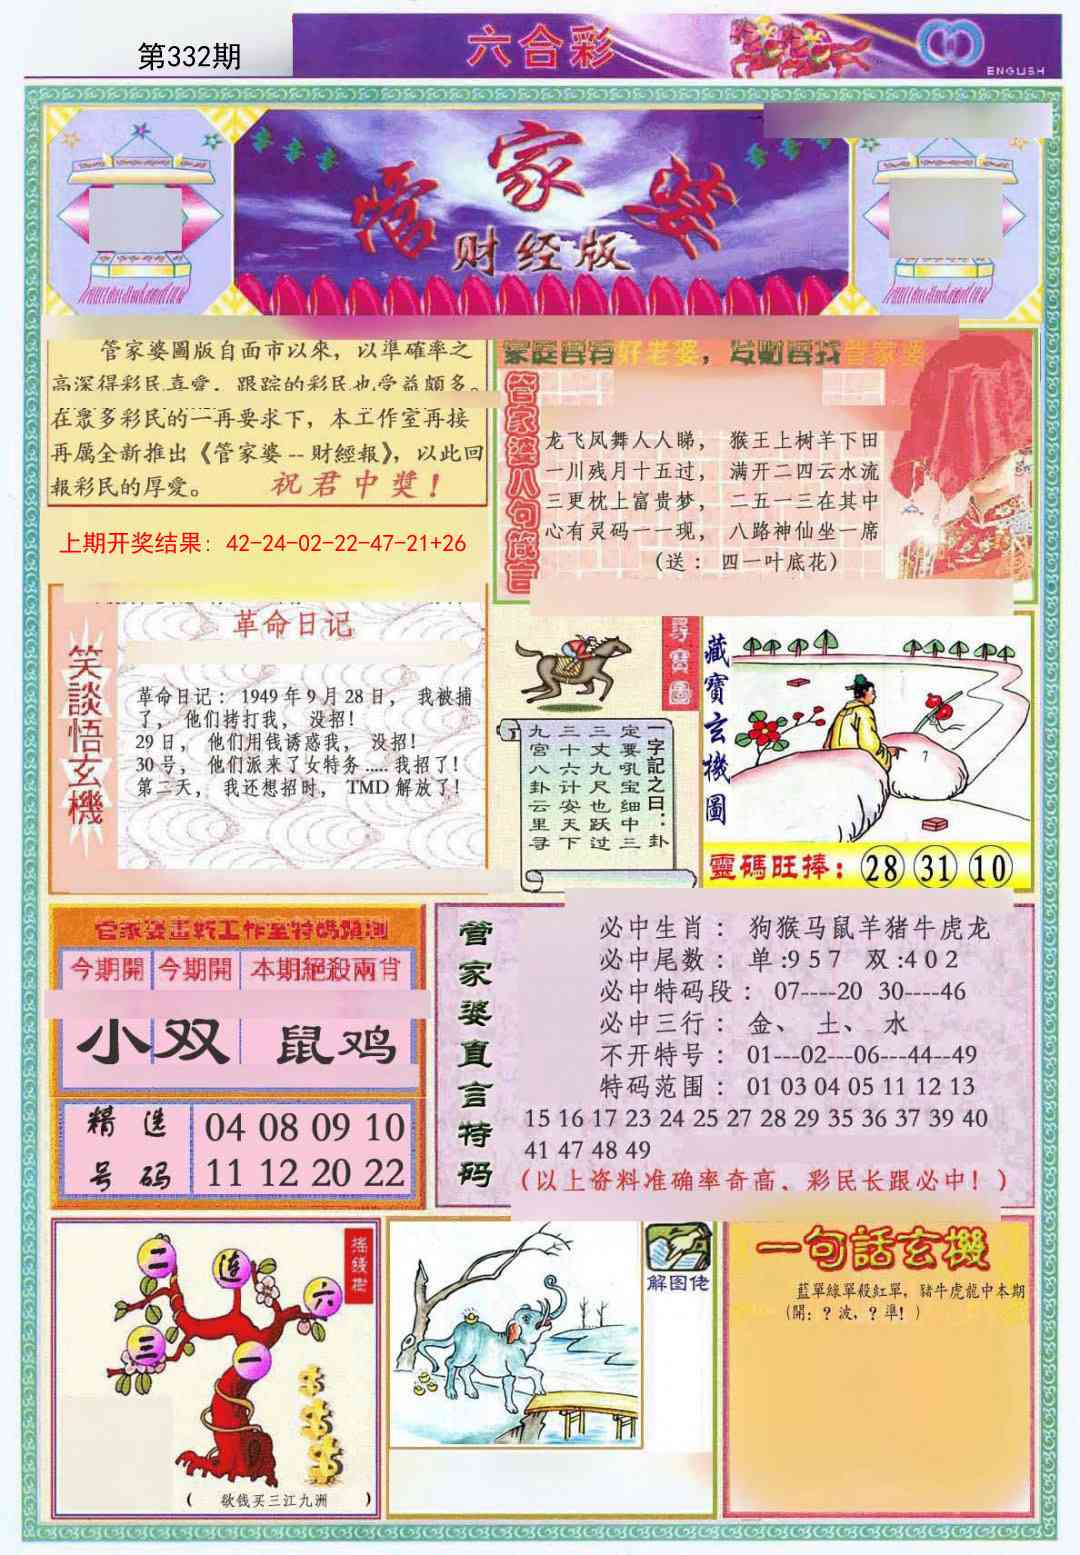 第332期
六合彩
ENGLISH
管家婆
财经版
管家婆圖版自面市以來，以準確率之
高深得彩民喜愛．跟踪的彩民也受益頗多。
在眾多彩民的一再要求下，本工作室再接
再厲全新推出《管家婆--財經報》，以此回
報彩民的厚愛。 祝君中獎！
上期开奖结果: 42-24-02-22-47-21+26
家庭宜有好老婆，发财宜找管家婆
管家婆八句箴言
龙飞凤舞人人睇， 猴王上树羊下田
一川残月十五过， 满开二四云水流
三更枕上富贵梦， 二五一三在其中
心有灵码一一现， 八路神仙坐一席
（送： 四一叶底花）
笑談悟玄機
革命日记
革命日记： 1949 年 9 月 28 日， 我被捕
了， 他们拷打我， 没招！
29 日， 他们用钱诱惑我， 没招！
30 号， 他们派来了女特务 ..... 我招了！
第二天， 我还想招时， TMD 解放了！
尋寶圖
一字記之曰：卦
定要吼宝细中三
三丈九尺也跃过
三十六计安天下
九宫八卦云里寻
藏寶玄機圖
靈碼旺捧：28 31 10
管家婆畫報工作室特碼預測
今期開 今期開 本期絕殺兩肖
小 双 鼠鸡
精选 04 08 09 10
号码 11 12 20 22
管家婆直言特码
必中生肖： 狗猴马鼠羊猪牛虎龙
必中尾数： 单:9 5 7 双:4 0 2
必中特码段： 07----20 30----46
必中三行： 金、 土、 水
不开特号： 01---02---06---44--49
特码范围： 01 03 04 05 11 12 13
15 16 17 23 24 25 27 28 29 35 36 37 39 40
41 47 48 49
（以上资料准确率奇高．彩民长跟必中！）
搖錢樹
二 连 六
三 一
（ 欲钱买三江九洲 ）
解图佬
一句話玄機
藍單綠單殺紅單，豬牛虎龍中本期
（開：？波，？準！）